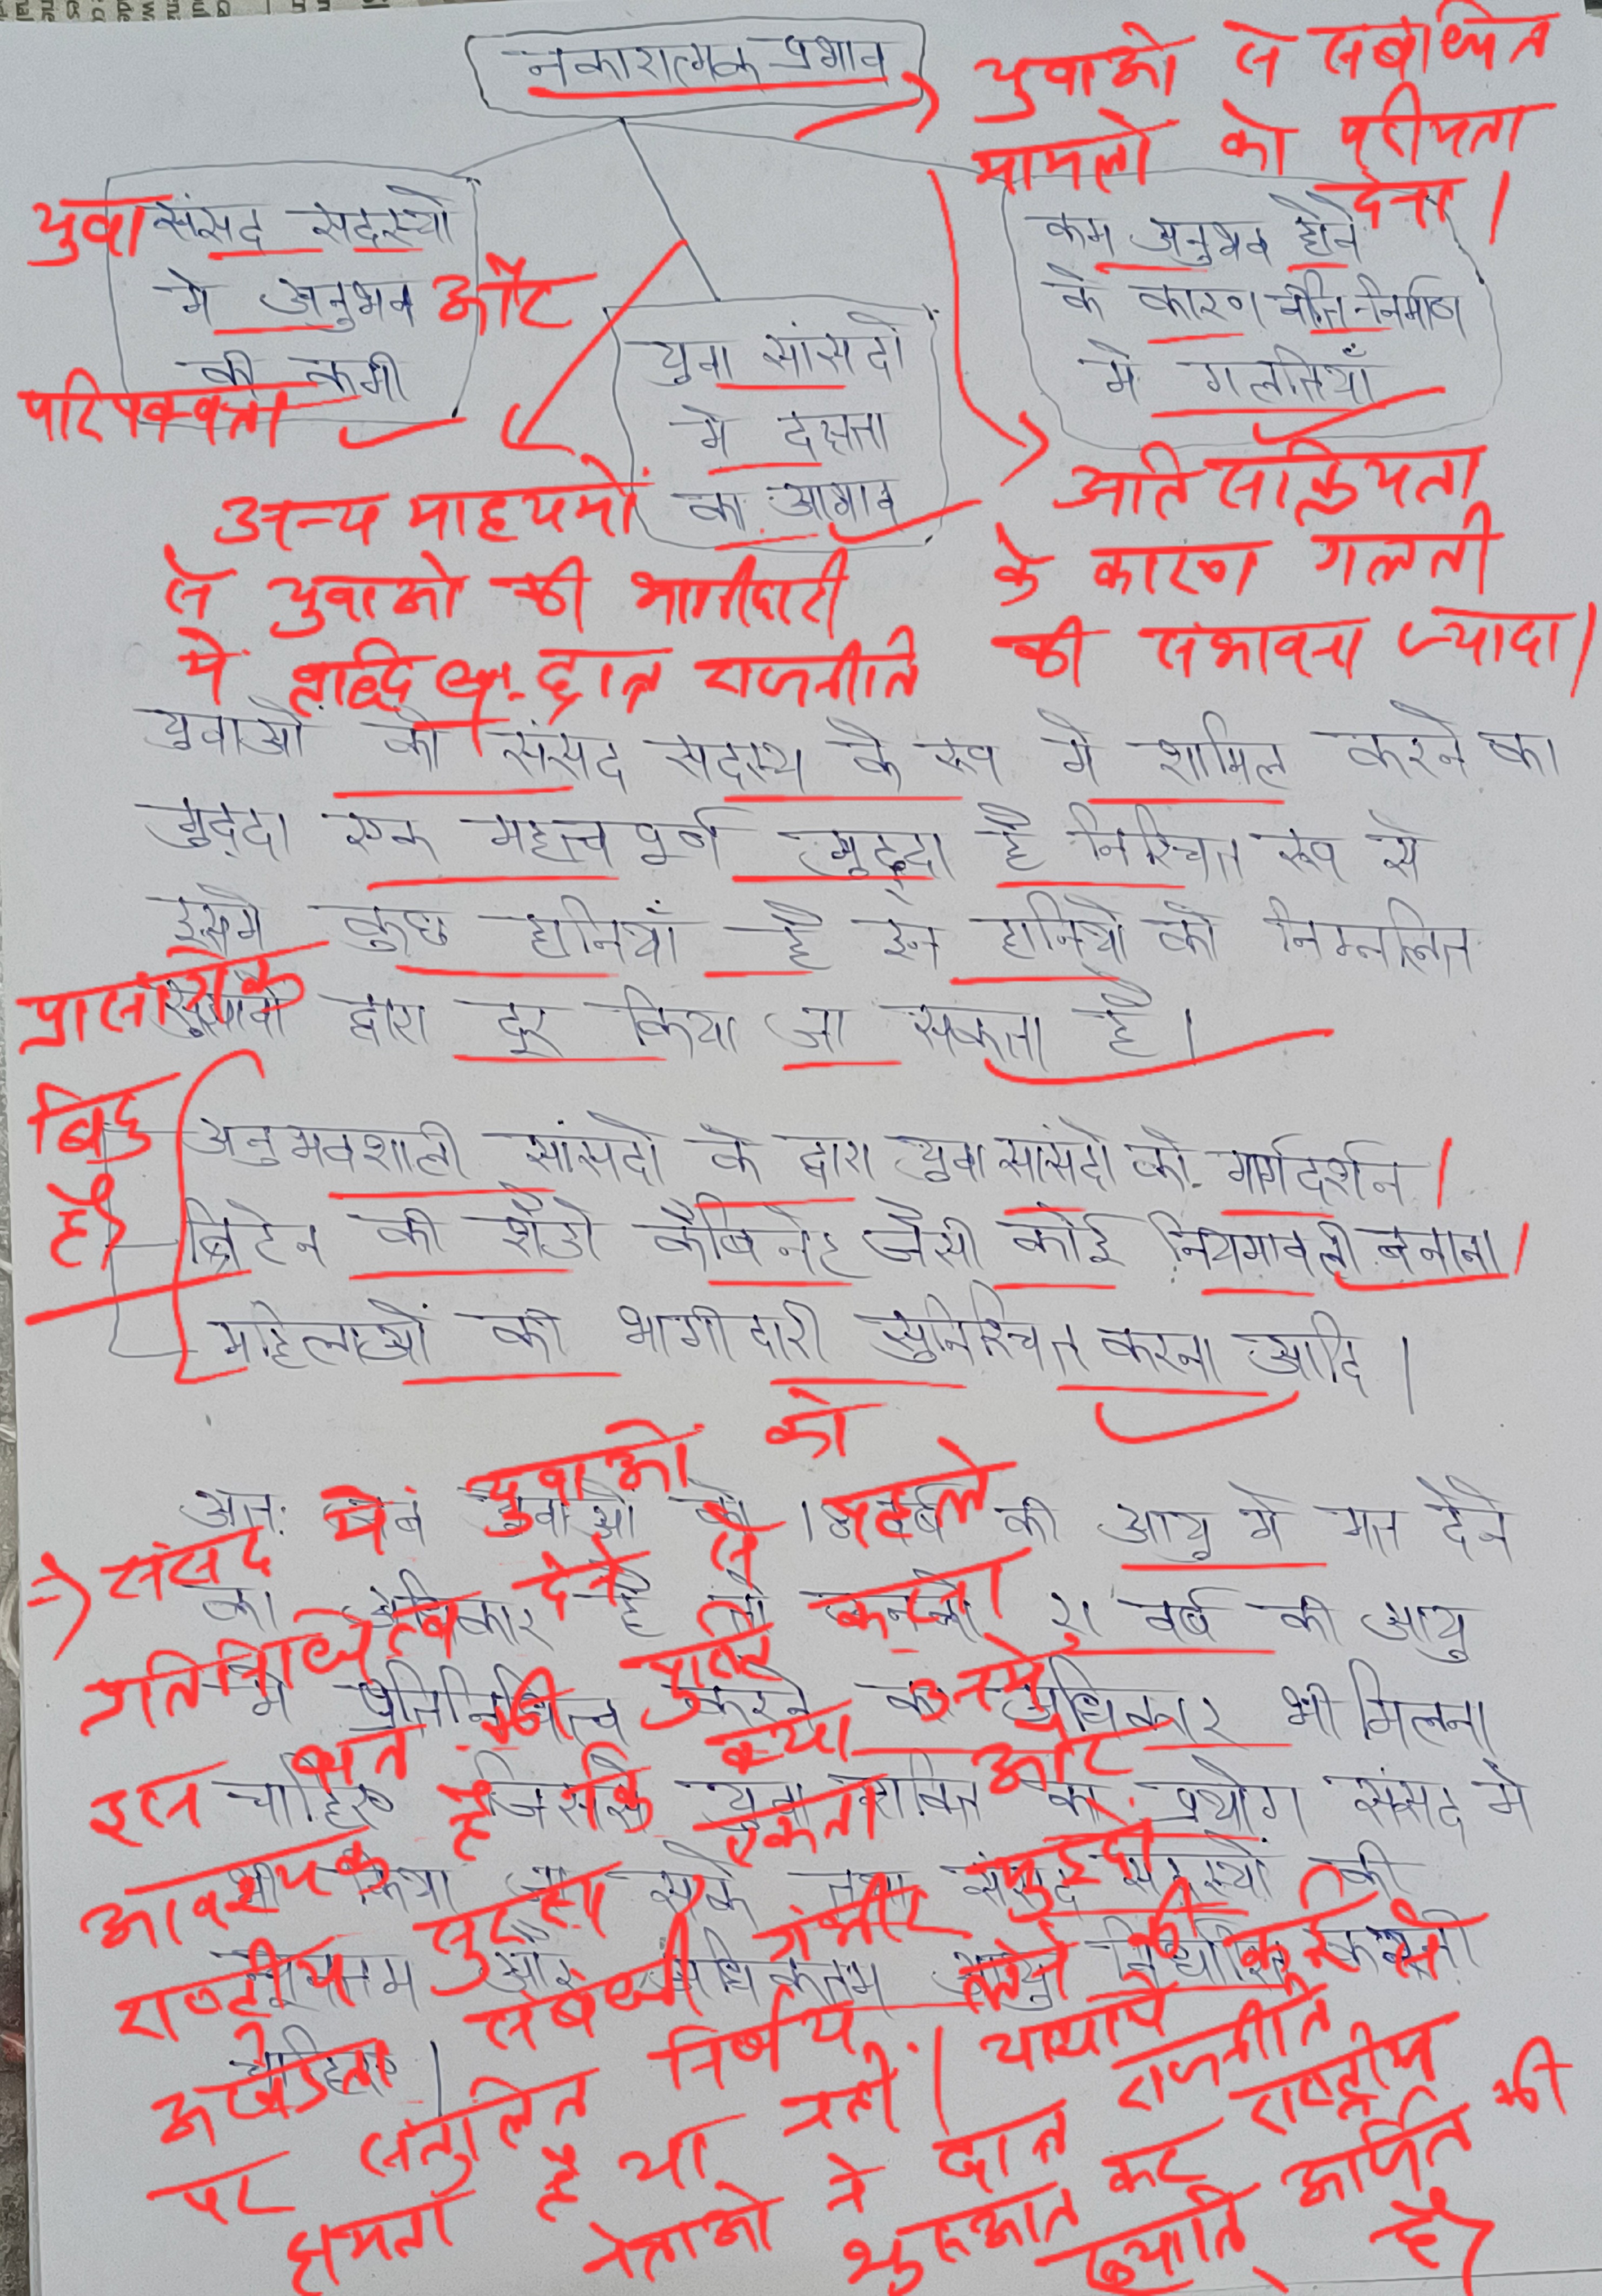 नकारात्मक प्रभाव
युवाओ से संबंधित
मामलो को वरीयता
देना।
युवा संसद सदस्यो
मे अनुभव और
की कमी
परिपक्वता
युवा सांसदो
मे दक्षता
का अभाव
कम अनुभव होने
के कारण नीति-निर्माण
मे गलतियाँ
अन्य माध्यमों
से युवाओ की भागीदारी
मे वृद्धि छात्र राजनीति
अति सक्रियता
के कारण गलती
की संभावना ज्यादा।
युवाओं को संसद सदस्य के रूप मे शामिल करने का
मुद्दा एक महत्वपूर्ण मुद्दा है निश्चित रूप से
इसमे कुछ हानियाँ है इन हानियो को निम्नलित
सुझावो द्वारा दूर किया जा सकता है।
प्रासंगिक
बिंदु
है।
अनुभवशाली सांसदो के द्वारा युवा सांसदो को मार्गदर्शन।
ब्रिटेन की शैडो कैबिनेट जैसी कोई नियमावली बनाना।
महिलाओं की भागीदारी सुनिश्चित करना आदि।
अतः जब युवाओं को 18 वर्ष की आयु मे मत देने
का अधिकार है तो उनको 21 वर्ष की आयु
मे प्रतिनिधित्व करने का अधिकार भी मिलना
चाहिए जिससे युवा शक्ति का प्रयोग संसद मे
भी किया जा सके तथा संसद सदस्यो की
न्यूनतम और अधिकतम आयु निर्धारित करनी
चाहिए।
⇒ संसद मे युवाओं को
प्रतिनिधित्व देने से पहले
इस बात की पुष्टि करना
आवश्यक है कि क्या उनमे
राष्ट्रीय सुरक्षा एकता और
अखंडता संबंधी गंभीर मुद्दो
पर संतुलित निर्णय लेने की
क्षमता है या नही। यद्यपि कई
नेताओ ने छात्र राजनीति से
शुरूआत कर राष्ट्रीय
ख्याति अर्जित की
है।